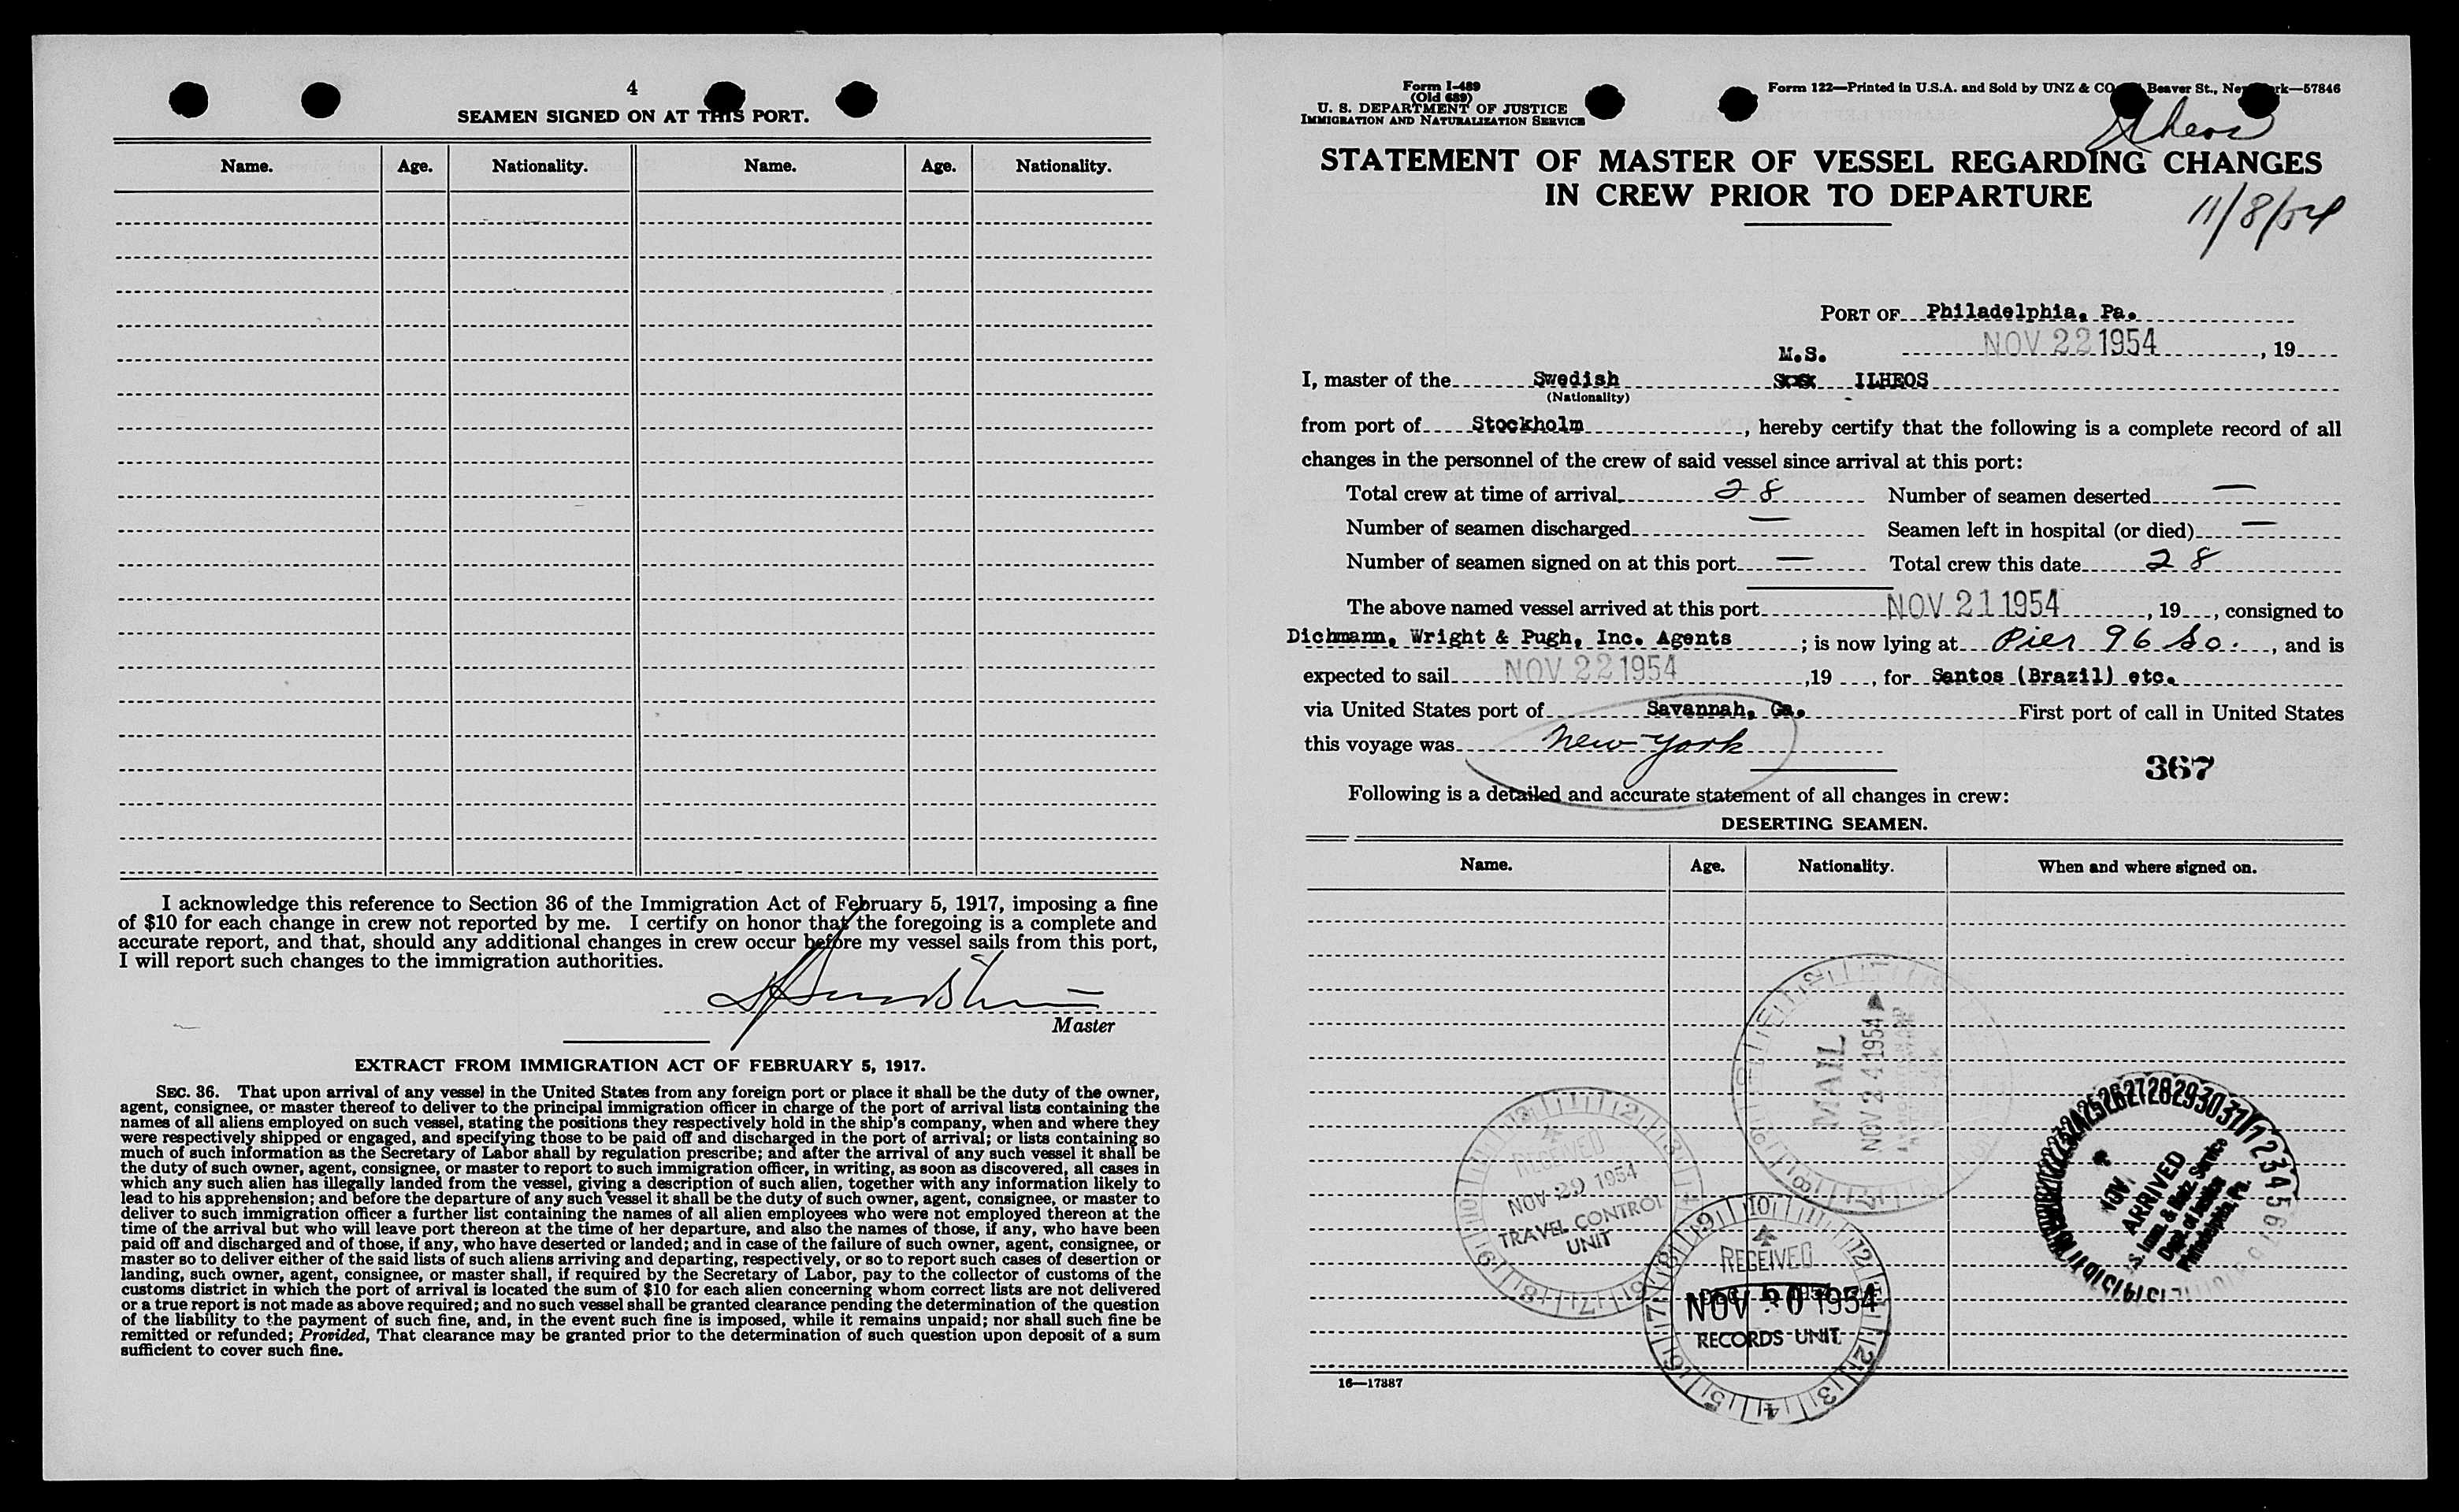 4
SEAMEN SIGNED ON AT THIS PORT.
Name. Age. Nationality. Name. Age. Nationality.
I acknowledge this reference to Section 36 of the Immigration Act of February 5, 1917, imposing a fine
of $10 for each change in crew not reported by me. I certify on honor that the foregoing is a complete and
accurate report, and that, should any additional changes in crew occur before my vessel sails from this port,
I will report such changes to the immigration authorities.
Master
EXTRACT FROM IMMIGRATION ACT OF FEBRUARY 5, 1917.
SEC. 36. That upon arrival of any vessel in the United States from any foreign port or place it shall be the duty of the owner,
agent, consignee, or master thereof to deliver to the principal immigration officer in charge of the port of arrival lists containing the
names of all aliens employed on such vessel, stating the positions they respectively hold in the ship's company, when and where they
were respectively shipped or engaged, and specifying those to be paid off and discharged in the port of arrival; or lists containing so
much of such information as the Secretary of Labor shall by regulation prescribe; and after the arrival of any such vessel it shall be
the duty of such owner, agent, consignee, or master to report to such immigration officer, in writing, as soon as discovered, all cases in
which any such alien has illegally landed from the vessel, giving a description of such alien, together with any information likely to
lead to his apprehension; and before the departure of any such vessel it shall be the duty of such owner, agent, consignee, or master to
deliver to such immigration officer a further list containing the names of all alien employees who were not employed thereon at the
time of the arrival but who will leave port thereon at the time of her departure, and also the names of those, if any, who have been
paid off and discharged and of those, if any, who have deserted or landed; and in case of the failure of such owner, agent, consignee, or
master so to deliver either of the said lists of such aliens arriving and departing, respectively, or so to report such cases of desertion or
landing, such owner, agent, consignee, or master shall, if required by the Secretary of Labor, pay to the collector of customs of the
customs district in which the port of arrival is located the sum of $10 for each alien concerning whom correct lists are not delivered
or a true report is not made as above required; and no such vessel shall be granted clearance pending the determination of the question
of the liability to the payment of such fine, and, in the event such fine is imposed, while it remains unpaid; nor shall such fine be
remitted or refunded; Provided, That clearance may be granted prior to the determination of such question upon deposit of a sum
sufficient to cover such fine.
Form I-489
(Old 689)
U. S. DEPARTMENT OF JUSTICE
IMMIGRATION AND NATURALIZATION SERVICE
Form 122—Printed in U.S.A. and Sold by UNZ & CO Beaver St., New York—57846
Ilheos
STATEMENT OF MASTER OF VESSEL REGARDING CHANGES
IN CREW PRIOR TO DEPARTURE
11/8/54
PORT OF Philadelphia, Pa.
NOV 22 1954, 19
M.S.
I, master of the Swedish ILHEOS
(Nationality)
from port of Stockholm, hereby certify that the following is a complete record of all
changes in the personnel of the crew of said vessel since arrival at this port:
Total crew at time of arrival 28 Number of seamen deserted —
Number of seamen discharged — Seamen left in hospital (or died) —
Number of seamen signed on at this port — Total crew this date 28
The above named vessel arrived at this port NOV 21 1954, 19, consigned to
Dichmann, Wright & Pugh, Inc. Agents; is now lying at Pier 96 So., and is
expected to sail NOV 22 1954, 19, for Santos (Brazil) etc.
via United States port of Savannah, Ga. First port of call in United States
this voyage was New York
367
Following is a detailed and accurate statement of all changes in crew:
DESERTING SEAMEN.
Name. Age. Nationality. When and where signed on.
MAIL
NOV 24 1954
RECEIVED
NOV 29 1954
TRAVEL CONTROL
UNIT
RECEIVED
NOV 30 1954
RECORDS UNIT
NOV
ARRIVED
U.S. Imm. & Natz. Service
Dept. of Justice
Philadelphia, Pa.
16—17887